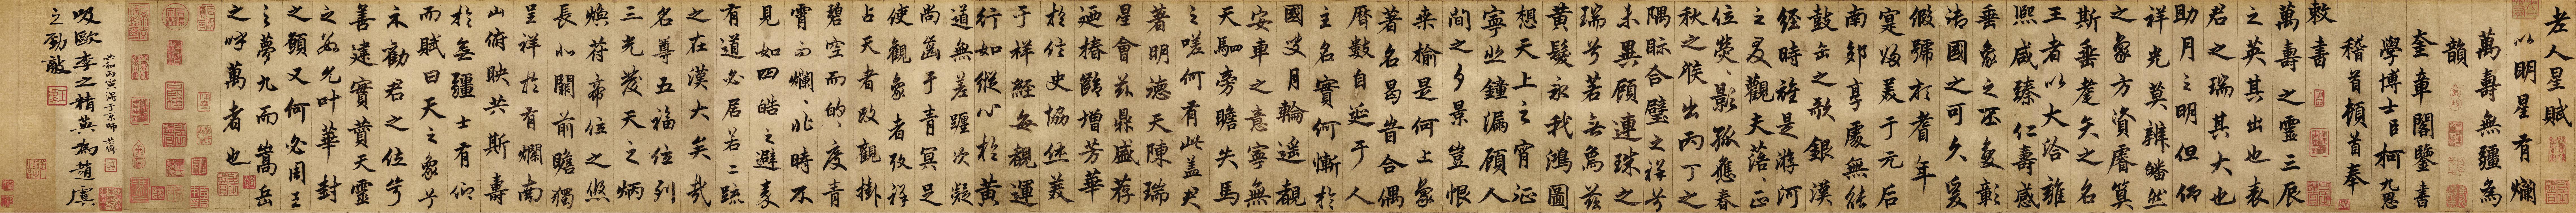 老人星賦
以明星有爛
萬壽無疆為
韻
奎章閣鑒書
學博士臣柯九思
稽首頓首奉
敕書
萬壽之靈三辰
之英其出也表
君之瑞其大也
助月之明但仰
祥光莫辨皤然
之象方資睿算
斯垂耄矣之名
王者以大洽雍
熙咸臻仁壽感
垂象之丕變彰
清國之可久爰
假號於耆年
寔發美于元后
南郊享處無能
鼓缶之歌銀漢
經時雖是游河
之叟觀夫落落正
位熒熒影孤應春
秋之候出丙丁之
隅際合璧之祥兮
未異顧連珠之
瑞兮若無為茲
黃髮永我鴻圖
想天上之宵征
寧悲鐘漏顧人
間之夕景豈恨
桑榆是何上象
著名曷嘗合偶
曆數自延于人
主名實何慚於
國叟月輪遙覩
安車之意寧無
天駟旁瞻失馬
之嗟何有此蓋君
著明德天陳瑞
星會茲鼎盛荐
廼椿齡增芳華
於信史協休美
于祥經每覩運
行如縱心於黃
道無差躔次凝
尚齒于青冥足
使觀象者攷祥
占天者改觀掛
碧空而的的度青
霄而爛爛非時不
見如四皓之避秦
有道必居若二疏
之在漢大矣哉
名尊五福位列
三光發天之炳
煥符帝位之悠
長北闕前瞻獨
呈祥於有爛南
山俯映共斯壽
於無疆士有仰
而賦曰天之象兮
示勸君之位兮
善建實賚天靈
之 允叶華封
之願又何必周王
之夢九而嵩岳
之呼萬者也
吸歐李之精英為趙虞
之勁敵